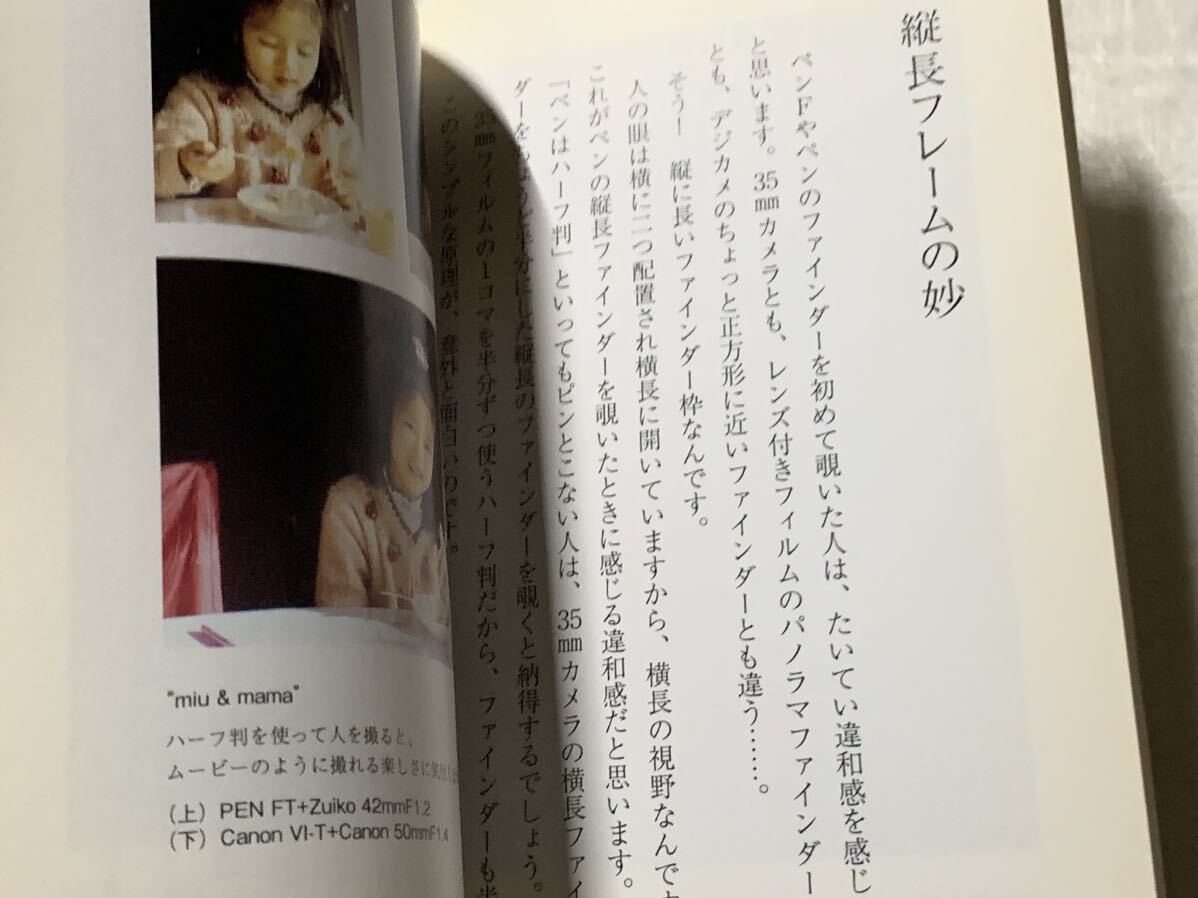 縦長フレームの妙
ペンFやペンのファインダーを初めて覗いた人は、たいてい違和感を感じ
と思います。35㎜カメラとも、レンズ付きフィルムのパノラマファインダー
とも、デジカメのちょっと正方形に近いファインダーとも違う……。
そう！　縦に長いファインダー枠なんです。
人の眼は横に二つ配置され横長に開いていますから、横長の視野なんで
これがペンの縦長ファインダーを覗いたときに感じる違和感だと思います。
「ペンはハーフ判」といってもピンとこない人は、35㎜カメラの横長ファイ
ダーをちょうど半分にした縦長のファインダーを覗くと納得するでしょう。
35㎜フィルムの1コマを半分ずつ使うハーフ判だから、ファインダーも半
このシンプルな原理が、意外と面白いのです。
"miu & mama"
ハーフ判を使って人を撮ると、
ムービーのように撮れる楽しさに気付く
(上) PEN FT+Zuiko 42mmF1.2
(下) Canon VI-T+Canon 50mmF1.4